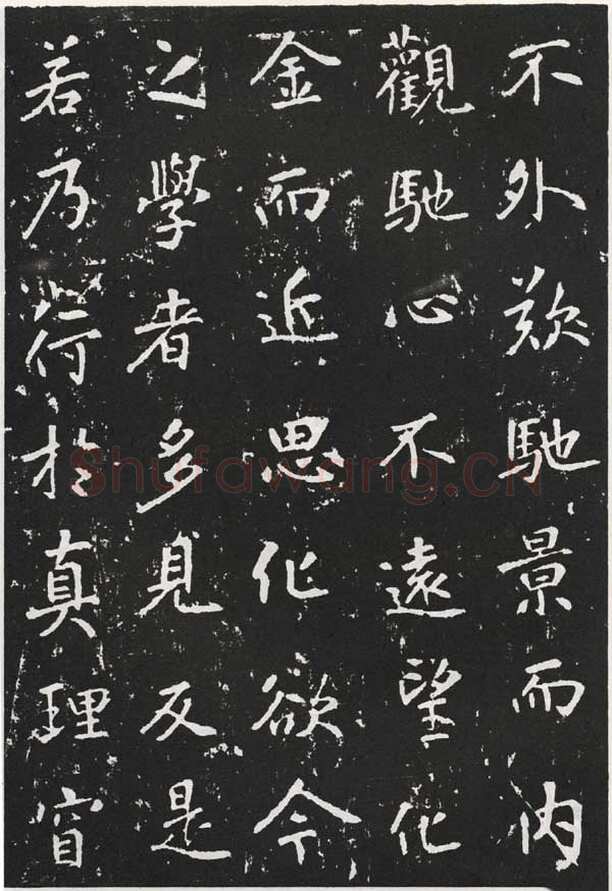 不外欻馳景而内
觀馳心不遠望化
金而近思化欲今
之學者多見反是
若乃於真理窅
Shufawang.cn